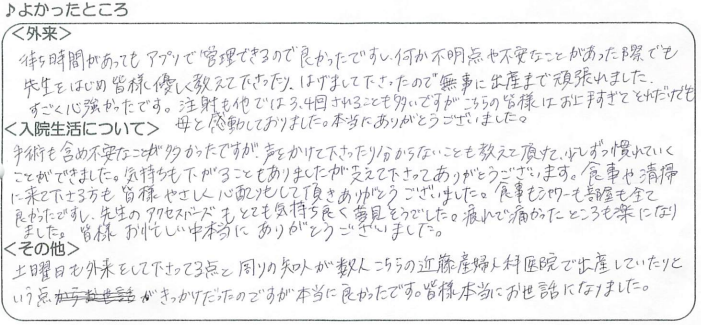 ♪よかったところ
＜外来＞
待ち時間があってもアプリで管理できるので良かったですし、何か不明点や不安なことがあった際でも
先生をはじめ皆様優しく教えて下さったり、はげまして下さったので無事に出産まで頑張れました。
すごく心強かったです。注射も他では3,4回されることも多いですがこちらの皆様はお上手すぎてそれだけでも
母と感動しておりました。本当にありがとうございました。
＜入院生活について＞
手術も含め不安なことが多かったですが、声をかけて下さったり分からないことも教えて頂けて、少しずつ慣れていく
ことができました。気持ちも下がることもありましたが支えて下さってありがとうございます。食事や清掃
に来て下さる方も皆様やさしく心配りもして頂きありがとうございました。食事もシャワーも部屋も全て
良かったですし、先生のアクセスバーズもとても気持ち良く夢見そうでした。疲れで痛かったところも楽になり
ました。皆様お忙しい中本当にありがとうございました。
＜その他＞
土曜日も外来をして下さってる点と周りの知人が数人こちらの近藤産婦人科医院で出産していたりと
いう点がきっかけだったのですが本当に良かったです。皆様本当にお世話になりました。